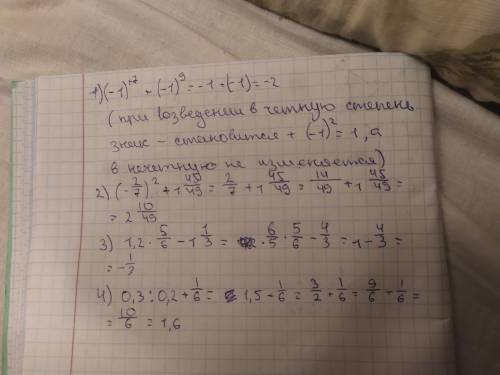 1) (-1)^17 + (-1)^9 = -1 + (-1) = -2
(при возведении в четную степень
знак - становится + (-1)^2 = 1, а
в нечетную не изменяется)
2) (-2/7)^2 + 1 45/49 = 2/7 + 1 45/49 = 14/49 + 1 45/49 =
= 2 10/49
3) 1,2 · 5/6 - 1 1/3 = 6/5 · 5/6 - 4/3 = 1 - 4/3 =
= - 1/3
4) 0,3 : 0,2 + 1/6 = 1,5 + 1/6 = 3/2 + 1/6 = 9/6 + 1/6 =
= 10/6 = 1,6